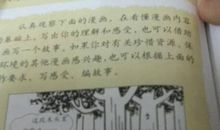 认真观察下面的漫画，在看懂漫画内容
的基础上，写出你的理解和感受，也可以借助
漫画写一个故事。如果你对有关珍惜资源、保
环境的其他漫画感兴趣，也可以根据上面的
要求，写感受、编故事。